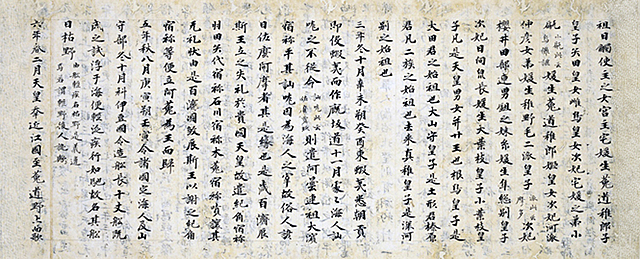 祖日觸使主之女宮主宅媛生菟道稚郎子
皇子矢田皇女雌鳥皇女次妃宅媛之弟小
甂媛小甂此云烏儺謎生菟道稚郎姫皇女次妃河派
仲彦女弟媛生稚野毛二派皇子派此云摩多次妃
櫻井田部連男鉏之妹糸媛生隼總別皇子
次妃日向泉長媛生大葉枝皇子小葉枝皇
子凡是天皇男女并廿王也根鳥皇子是
大田君之始祖也大山守皇子是土形君榛原
君凡二族之始祖也去來真稚皇子是深河
別之始祖也
三年冬十月辛未朔癸酉東蝦夷悉朝貢
即役蝦夷而作厩坂道十一月處々海人訕
哤之不從命訕哤此云佐麼賣玖則遣阿曇連祖大濱
宿祢平其訕哤因為海人之宰故俗人諺
曰佐麼阿摩者其是縁也是歳百濟辰
斯王立之失礼於貴國天皇故遣紀角宿祢
羽田矢代宿祢石川宿祢木菟宿祢嘖譲其
无礼状由是百濟國殺辰斯王以謝之紀角
宿祢等便立阿花為王而歸
五年秋八月庚寅朔壬寅令諸國定海人及山
守部冬十月科伊豆國令造船長十丈船既
成之試浮于海便輕泛疾行如馳故名其船
曰枯野由船輕疾名枯野是義違焉若謂輕野後人訛歟
六年春二月天皇幸近江國至菟道野上而歌